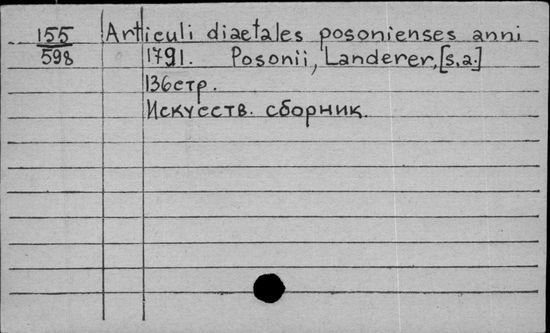 155 Articuli diaetales posonienses anni
598 1791. Posonii, Landerer, [s.a.]
136стр.
Искусств. сборник.